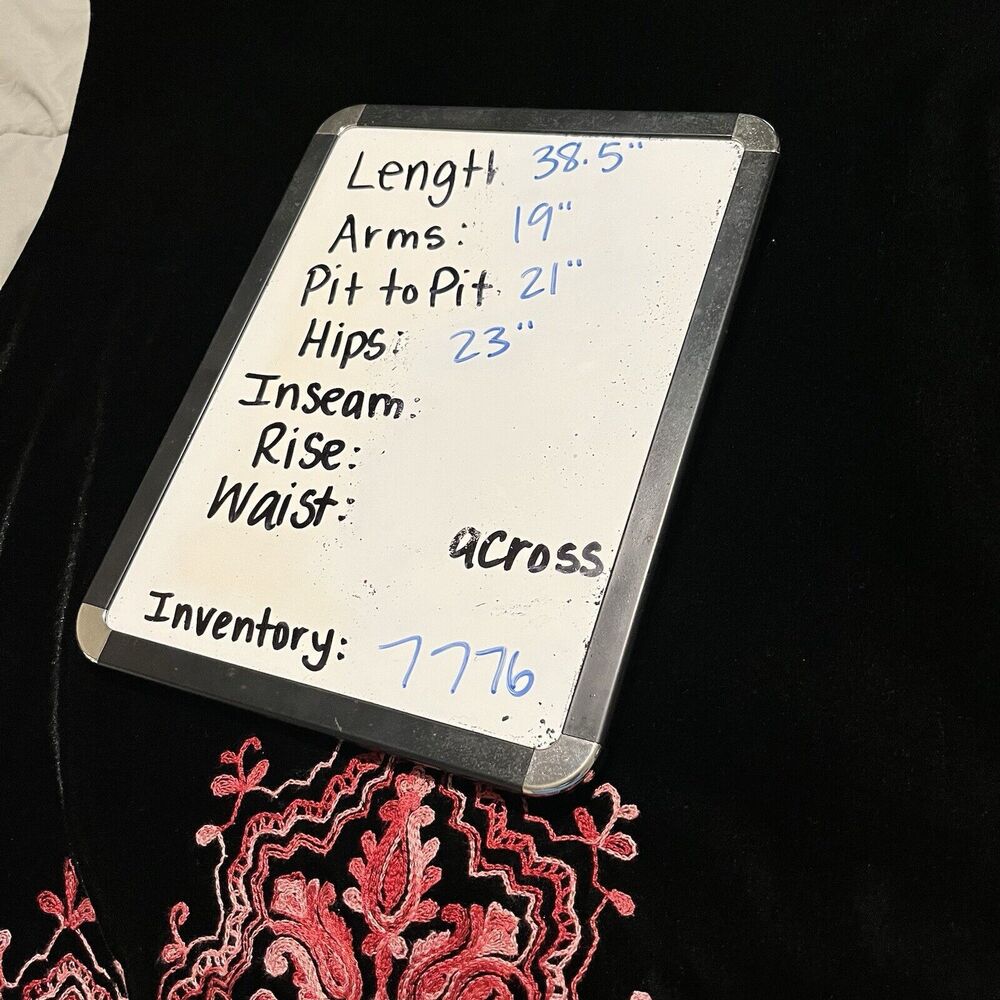 Length 38.5"
Arms: 19"
Pit to Pit 21"
Hips: 23"
Inseam:
Rise:
Waist:
across
Inventory: 7776